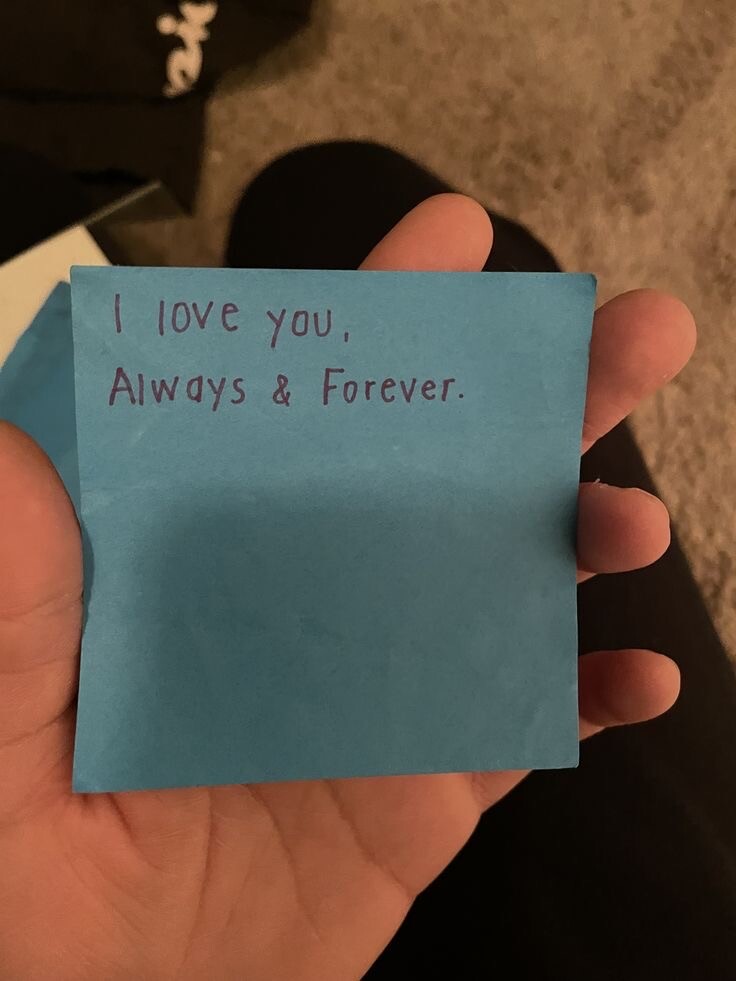 I love you,
Always & Forever.